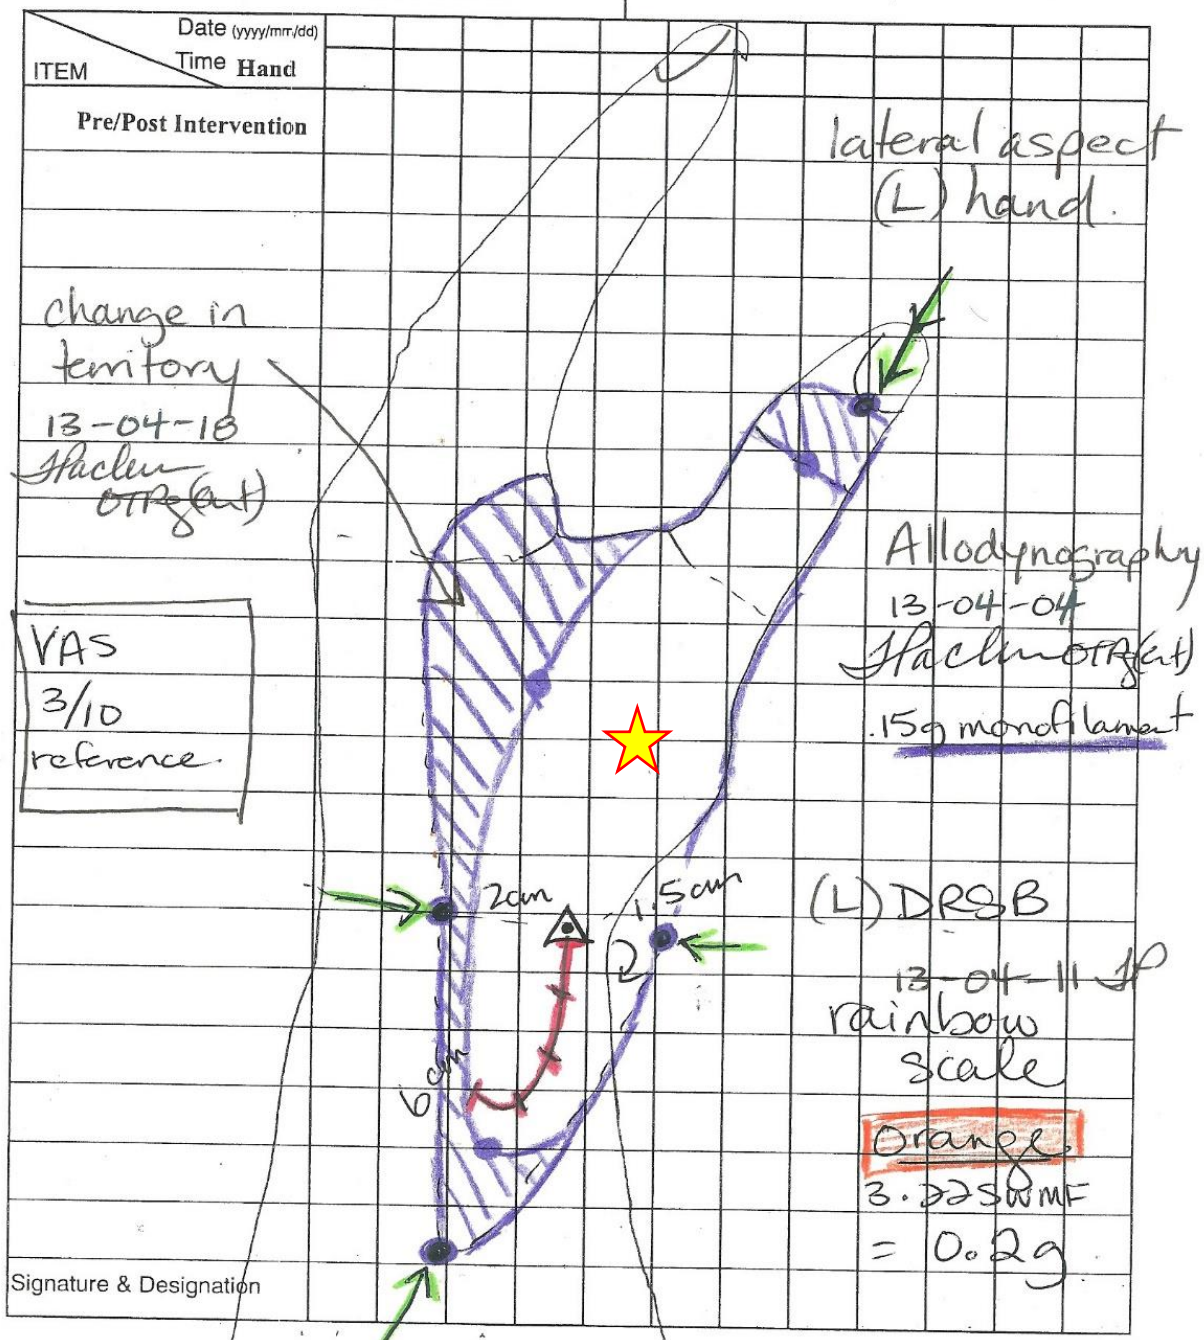 Date (yyyy/mm/dd)
Time Hand
ITEM
Pre/Post Intervention
lateral aspect
(L) hand.
change in
territory
13-04-18
OTReg(Ont)
Allodynography
13-04-04
OTReg(Ont)
.15g monofilament
VAS
3/10
reference.
2cm
1.5cm
6cm
(L) DRSB
13-04-11
rainbow
scale
Orange.
3.22SWMF
= 0.2g
Signature & Designation